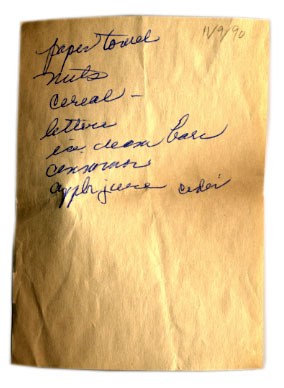 11/9/90
paper towel
nuts
cereal –
lettuce
ice cream bars
cinnamon
apple juice cider